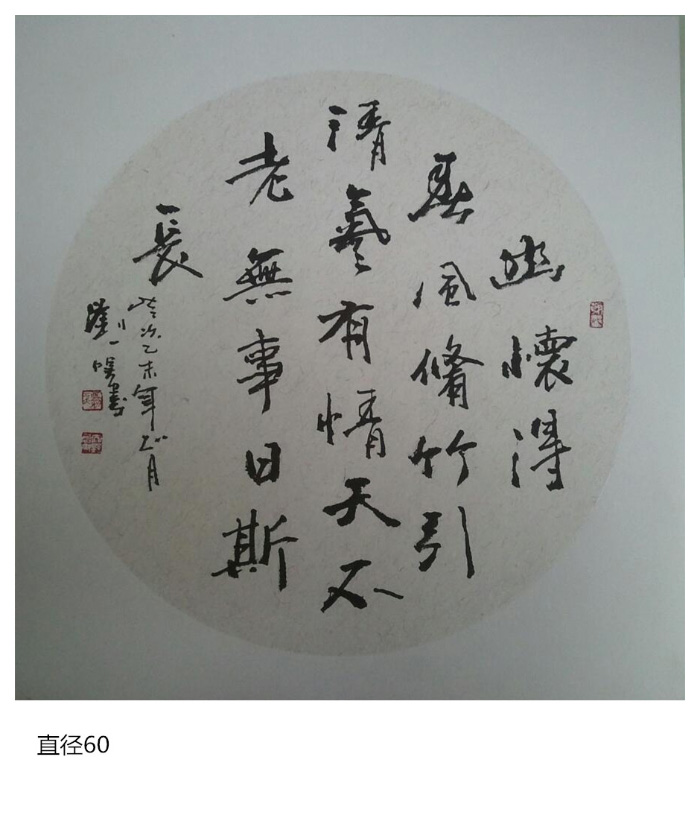 幽懷得
惠風脩竹引
清氣有情天不
老無事日斯
長
歲次乙未年月
劉一書
直径60